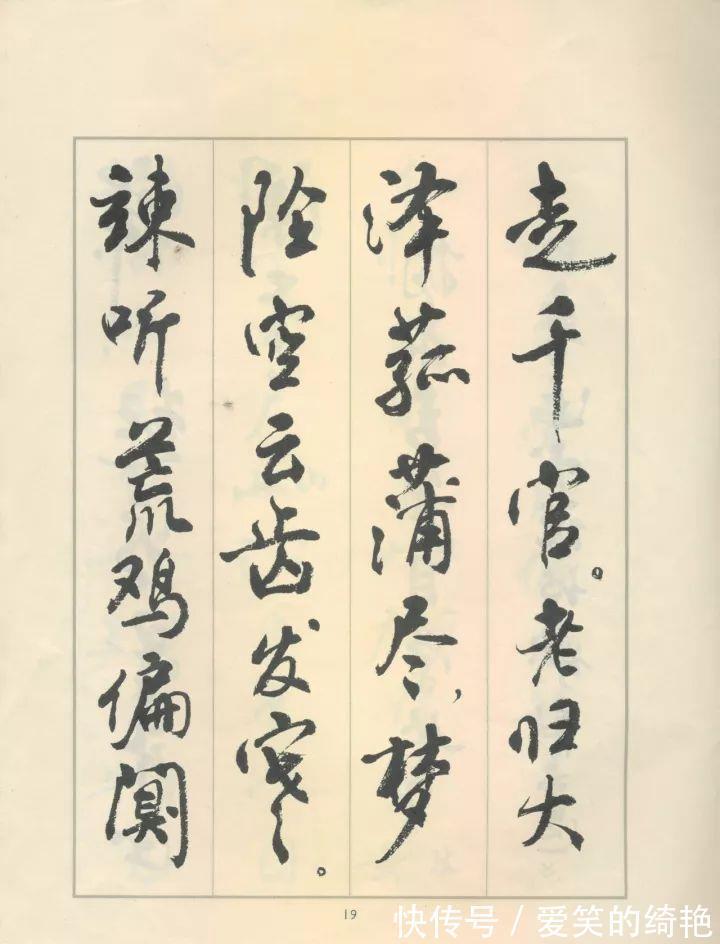 走千官。老归大
泽菰蒲尽，梦
坠空云齿发寒。
竦听荒鸡偏阒
19
快传号 / 爱笑的绮艳